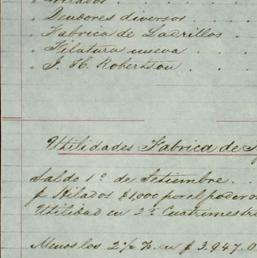 Deudores diversos
Fabrica de Ladrillos
Filatura nueva
J. H. Robertson
Utilidades Fabrica de
Saldo 1º de Setiembre
p Hilados $1,000 por el poder
Utilidad en 2º Cuatrimestre
Menos los 2½ % en $ 3.967.0